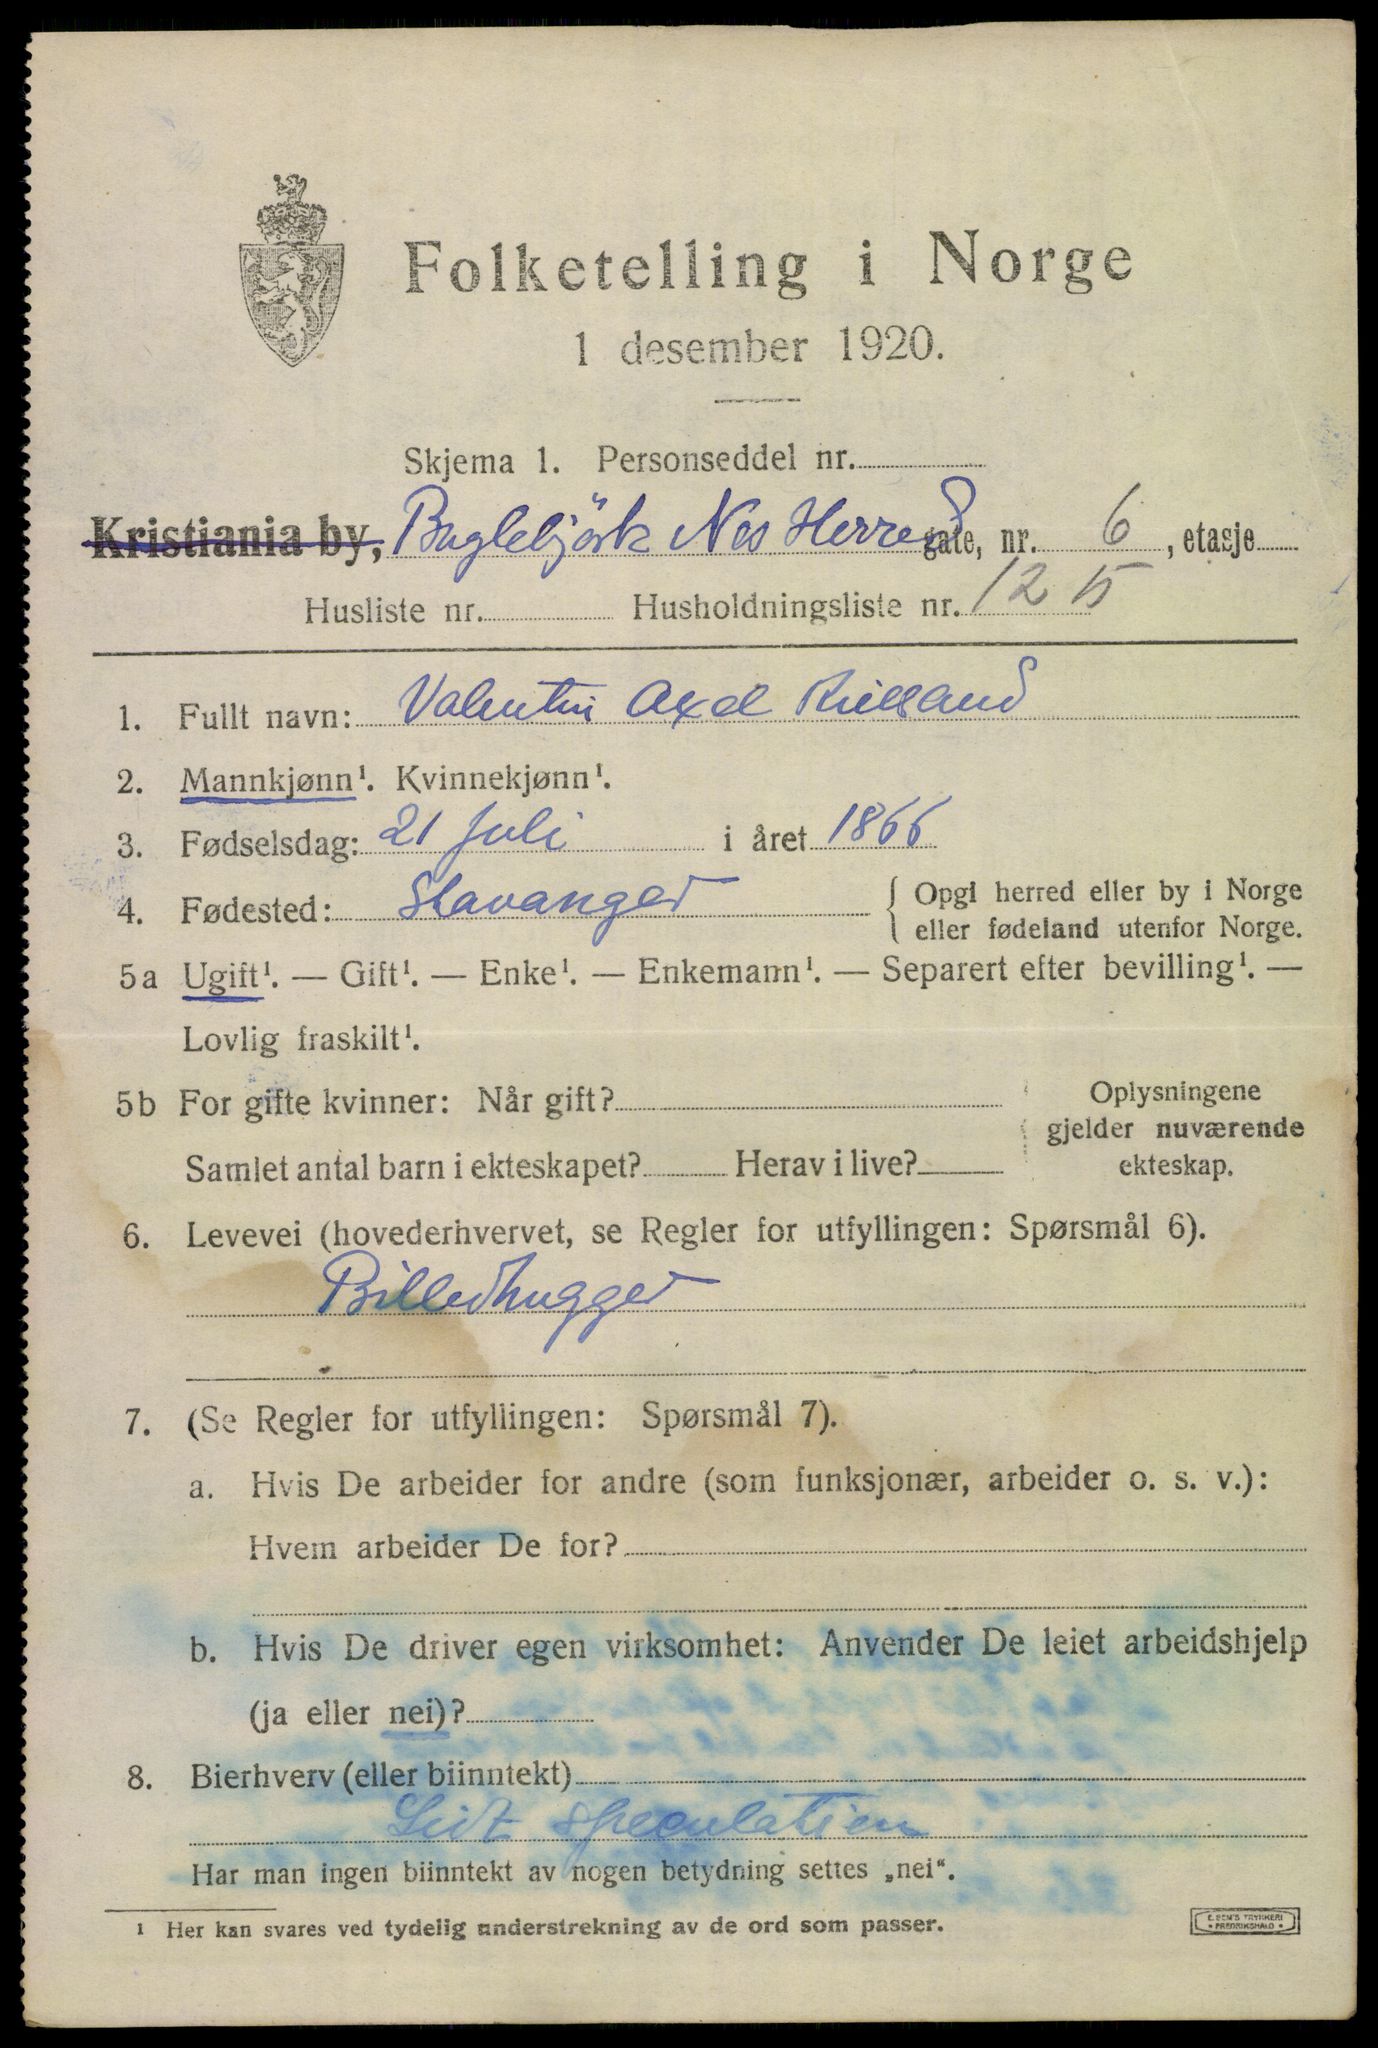 Folketelling i Norge
1 desember 1920.
Skjema 1. Personseddel nr.
Kristiania by, Buglebjörk Nes Herred gate, nr. 6, etasje
Husliste nr. Husholdningsliste nr. 12
1. Fullt navn: Valentin Axel Kielland
2. Mannkjønn¹. Kvinnekjønn¹.
3. Fødselsdag: 21 Juli i året 1866
4. Fødested: Stavanger { Opgi herred eller by i Norge
eller fødeland utenfor Norge.
5a Ugift¹. — Gift¹. — Enke¹. — Enkemann¹. — Separert efter bevilling¹. —
Lovlig fraskilt¹.
5b For gifte kvinner: Når gift? Oplysningene
gjelder nuværende
Samlet antal barn i ekteskapet? Herav i live? ekteskap.
6. Levevei (hovederhvervet, se Regler for utfyllingen: Spørsmål 6).
Billedhugger
7. (Se Regler for utfyllingen: Spørsmål 7).
a. Hvis De arbeider for andre (som funksjonær, arbeider o. s. v.):
Hvem arbeider De for?
b. Hvis De driver egen virksomhet: Anvender De leiet arbeidshjelp
(ja eller nei)?
8. Bierhverv (eller biinntekt)
Lidt speculation
Har man ingen biinntekt av nogen betydning settes „nei“.
¹ Her kan svares ved tydelig understrekning av de ord som passer.
E. SEM'S TRYKKERI
• FREDRIKSHALD •